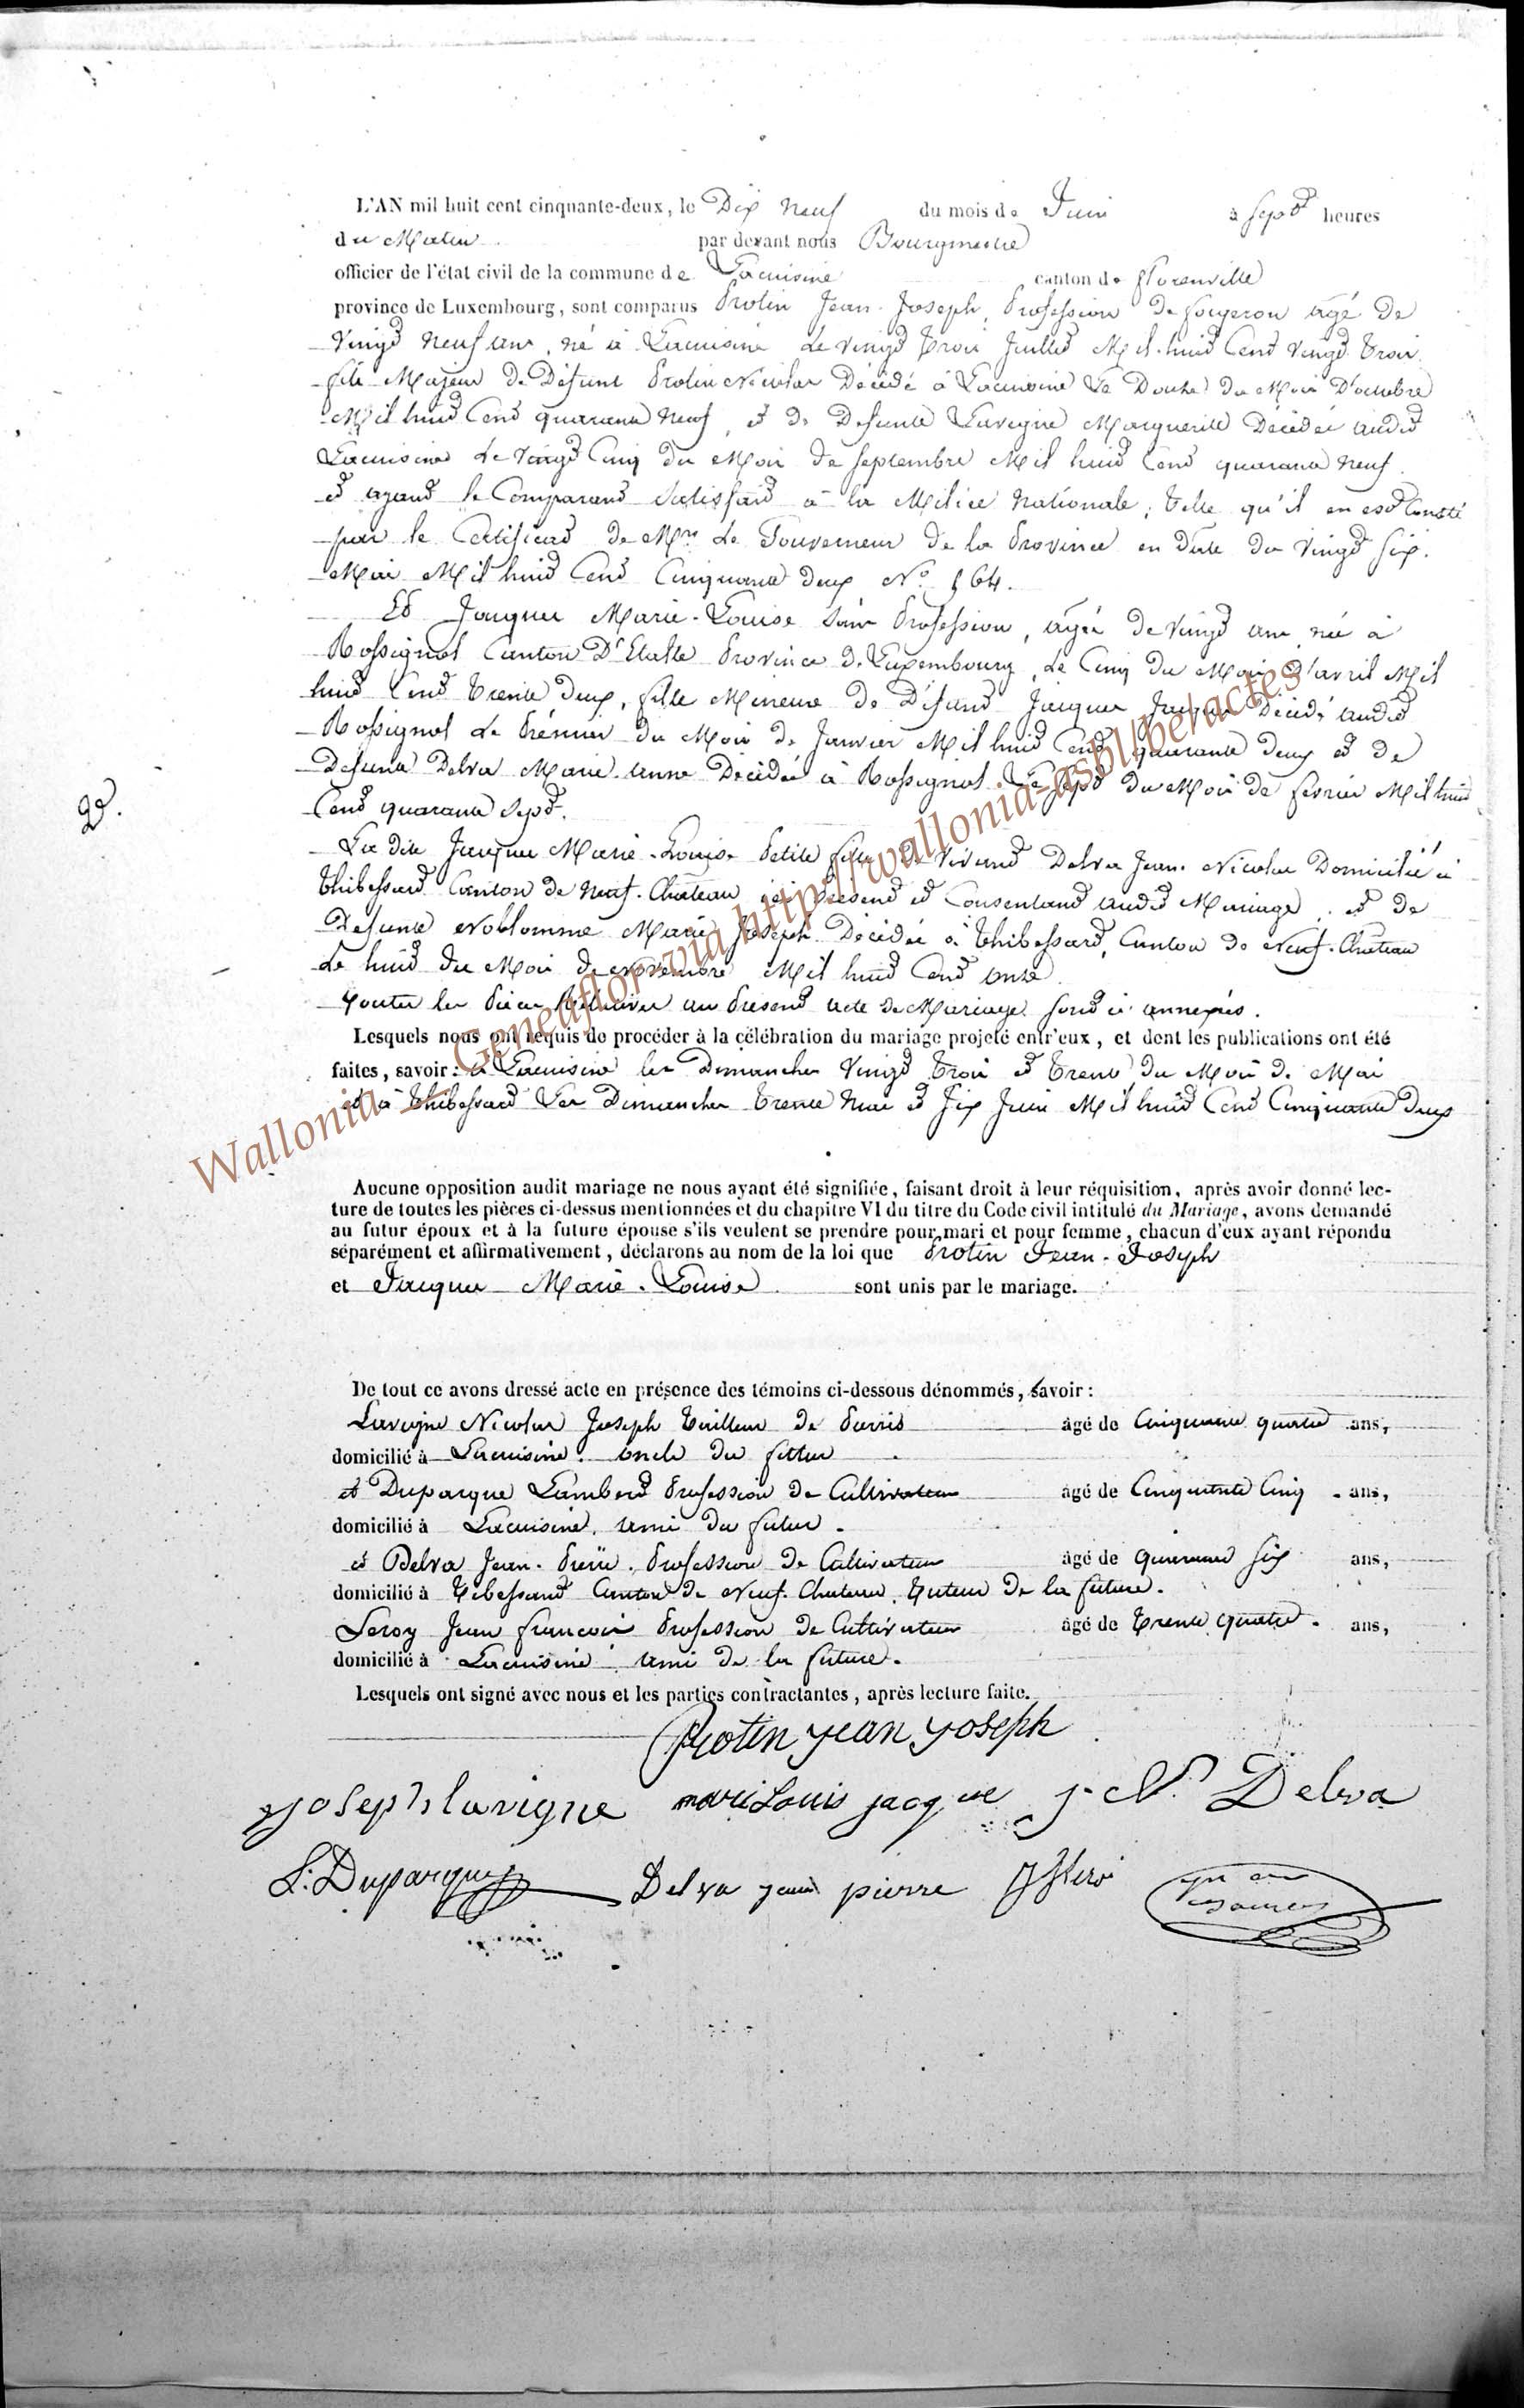 L'AN mil huit cent cinquante-deux, le Dix Neuf du mois de Juin à Sept heures
du Matin par devant nous Bourgmestre
officier de l'état civil de la commune de Lacuisine canton de florenville
province de Luxembourg, sont comparus Protin Jean-Joseph, Profession de forgeron agé de
Vingt Neuf ans, né à Lacuisine le vingt Trois Juillet Mil-huit Cent Vingt Trois
fils Majeur De Défunt Protin Nicolas Décédé à Lacuisine Le Douze du Mois D'octobre
Mil huit Cent quarante Neuf, et de Defunte Lavigne Marguerite Décédée audit
Lacuisine Le Vingt Cinq du Mois de Septembre Mil huit Cent quarante neuf
et ayant le Comparant Satisfait à la Milice Nationale, telle qu'il en est Consté
par le Certificat de Mr Le Gouverneur de la Province en Date du Vingt Six
Mai Mil huit Cent Cinquante Deux No 564.
Et Jacques Marie-Louise Sans Profession, agée de Vingt ans, née à
Rossignol Canton D'Etalle Province de Luxembourg, Le Cinq du Mois D'avril Mil
huit Cent Trente Deux, fille Mineure de Défunt Jacques Jacques Décédé audit
Rossignol Le Prémier du Mois de Janvier Mil huit Cent quarante deux et de
Defunte Delva Marie-Anne Décédée à Rossignol Le Sept du Mois de fevrier Mil huit
2.
Cent quarante Sept.
La dite Jacques Marie-Louise Petite fille de Vivant Delva Jean-Nicolas Domicilié à
Thibessard Canton de Neuf-Château ici Present et Consentant audit Mariage, et de
Defunte Noblomme Marie Joseph Décédée à Thibessard, Canton de Neuf-Château
Le huit du Mois de Novembre Mil huit Cent onze
Toutes les Pièces Relatives au Present acte de Mariage sont ci annexés.
Lesquels nous ont requis de procéder à la célébration du mariage projeté entr'eux, et dont les publications ont été
faites, savoir: à Lacuisine les Dimanches Vingt Trois et Trente du Mois de Mai
et à Thibessard Les Dimanches Trente Mai et Six Juin Mil huit Cent Cinquante Deux
Wallonia - Geneaflor via http://wallonia-asbl.be/actes
Aucune opposition audit mariage ne nous ayant été signifiée, faisant droit à leur réquisition, après avoir donné lec-
ture de toutes les pièces ci-dessus mentionnées et du chapitre VI du titre du Code civil intitulé du Mariage, avons demandé
au futur époux et à la future épouse s'ils veulent se prendre pour mari et pour femme, chacun d'eux ayant répondu
séparément et affirmativement, déclarons au nom de la loi que Protin Jean-Joseph
et Jacques Marie-Louise sont unis par le mariage.
De tout ce avons dressé acte en présence des témoins ci-dessous dénommés, savoir:
Lavigne Nicolas Joseph Tailleur de Pierres agé de Cinquante quatre ans,
domicilié à Lacuisine. oncle du futur
et Duparque Lambert Profession de Cultivateur agé de Cinquante Cinq ans,
domicilié à Lacuisine, ami du futur.
et Delva Jean-Pierre, Profession de Cultivateur agé de quarante Six ans,
domicilié à Tibessard Canton de Neuf-Chateau, Tuteur de la future.
Leroy Jean francois Profession de Cultivateur agé de Trente quatre ans,
domicilié à Lacuisine ami de la future.
Lesquels ont signé avec nous et les parties contractantes, après lecture faite.
Protin jean joseph
joseph lavigne marie Louis jacque J. N. Delva
L. Duparque Delva jean pierre